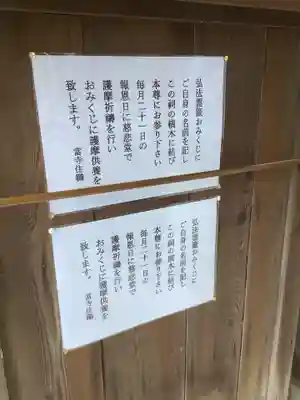 弘法霊籤おみくじに
ご自身の名前を記し
この祠の横木に結び
本尊にお参り下さい
毎月二十一日の
報恩日に慈悲堂で
護摩祈禱を行い
おみくじに護摩供養を
致します。
當寺住職
弘法霊籤おみくじに
ご自身の名前を記し
この祠の横木に結び
本尊にお参り下さい
毎月二十一日の
報恩日に慈悲堂で
護摩祈禱を行い
おみくじに護摩供養を
致します。
當寺住職